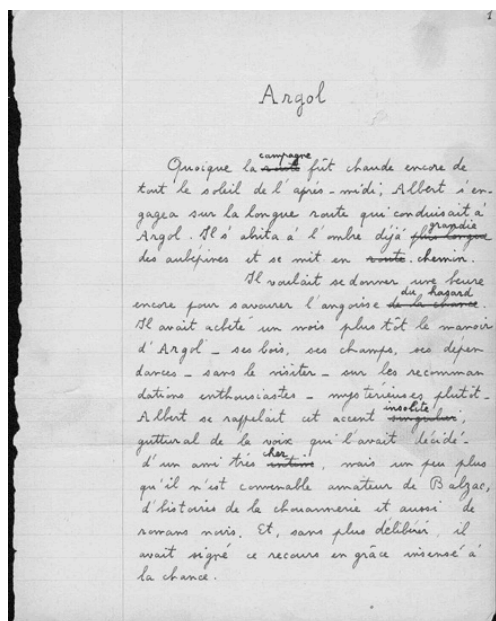 1
Argol
Quoique la route campagne fût chaude encore de
tout le soleil de l'après-midi, Albert s'en-
gagea sur la longue route qui conduisait à
Argol. Il s'abrita à l'ombre déjà plus longue grandie
des aubépines et se mit en route. chemin.
Il voulait se donner une heure
encore pour savourer l'angoisse de la chance du hasard.
Il avait acheté un mois plus tôt le manoir
d'Argol – ses bois, ses champs, ses dépen
dances – sans le visiter – sur les recomman
dations enthousiastes – mystérieuses plutôt –
Albert se rappelait cet accent singulier insolite,
guttural de la voix qui l'avait décidé –
d'un ami très intime cher, mais un peu plus
qu'il n'est convenable amateur de Balzac,
d'histoires de la chouannerie et aussi de
romans noirs. Et, sans plus délibérer, il
avait signé ce recours en grâce insensé à
la chance.